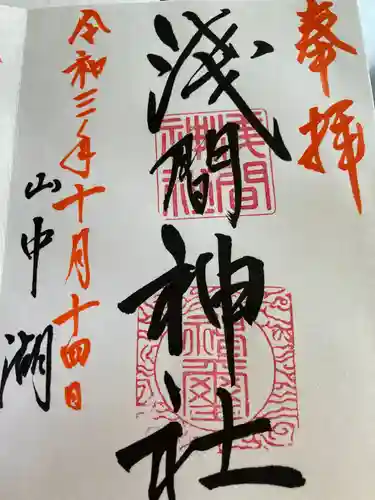 奉拝
淺間神社
令和三年十月十四日
山中湖
淺間神社